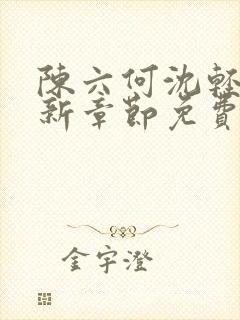 陳六何沈輕
新章節免費
金宇澄